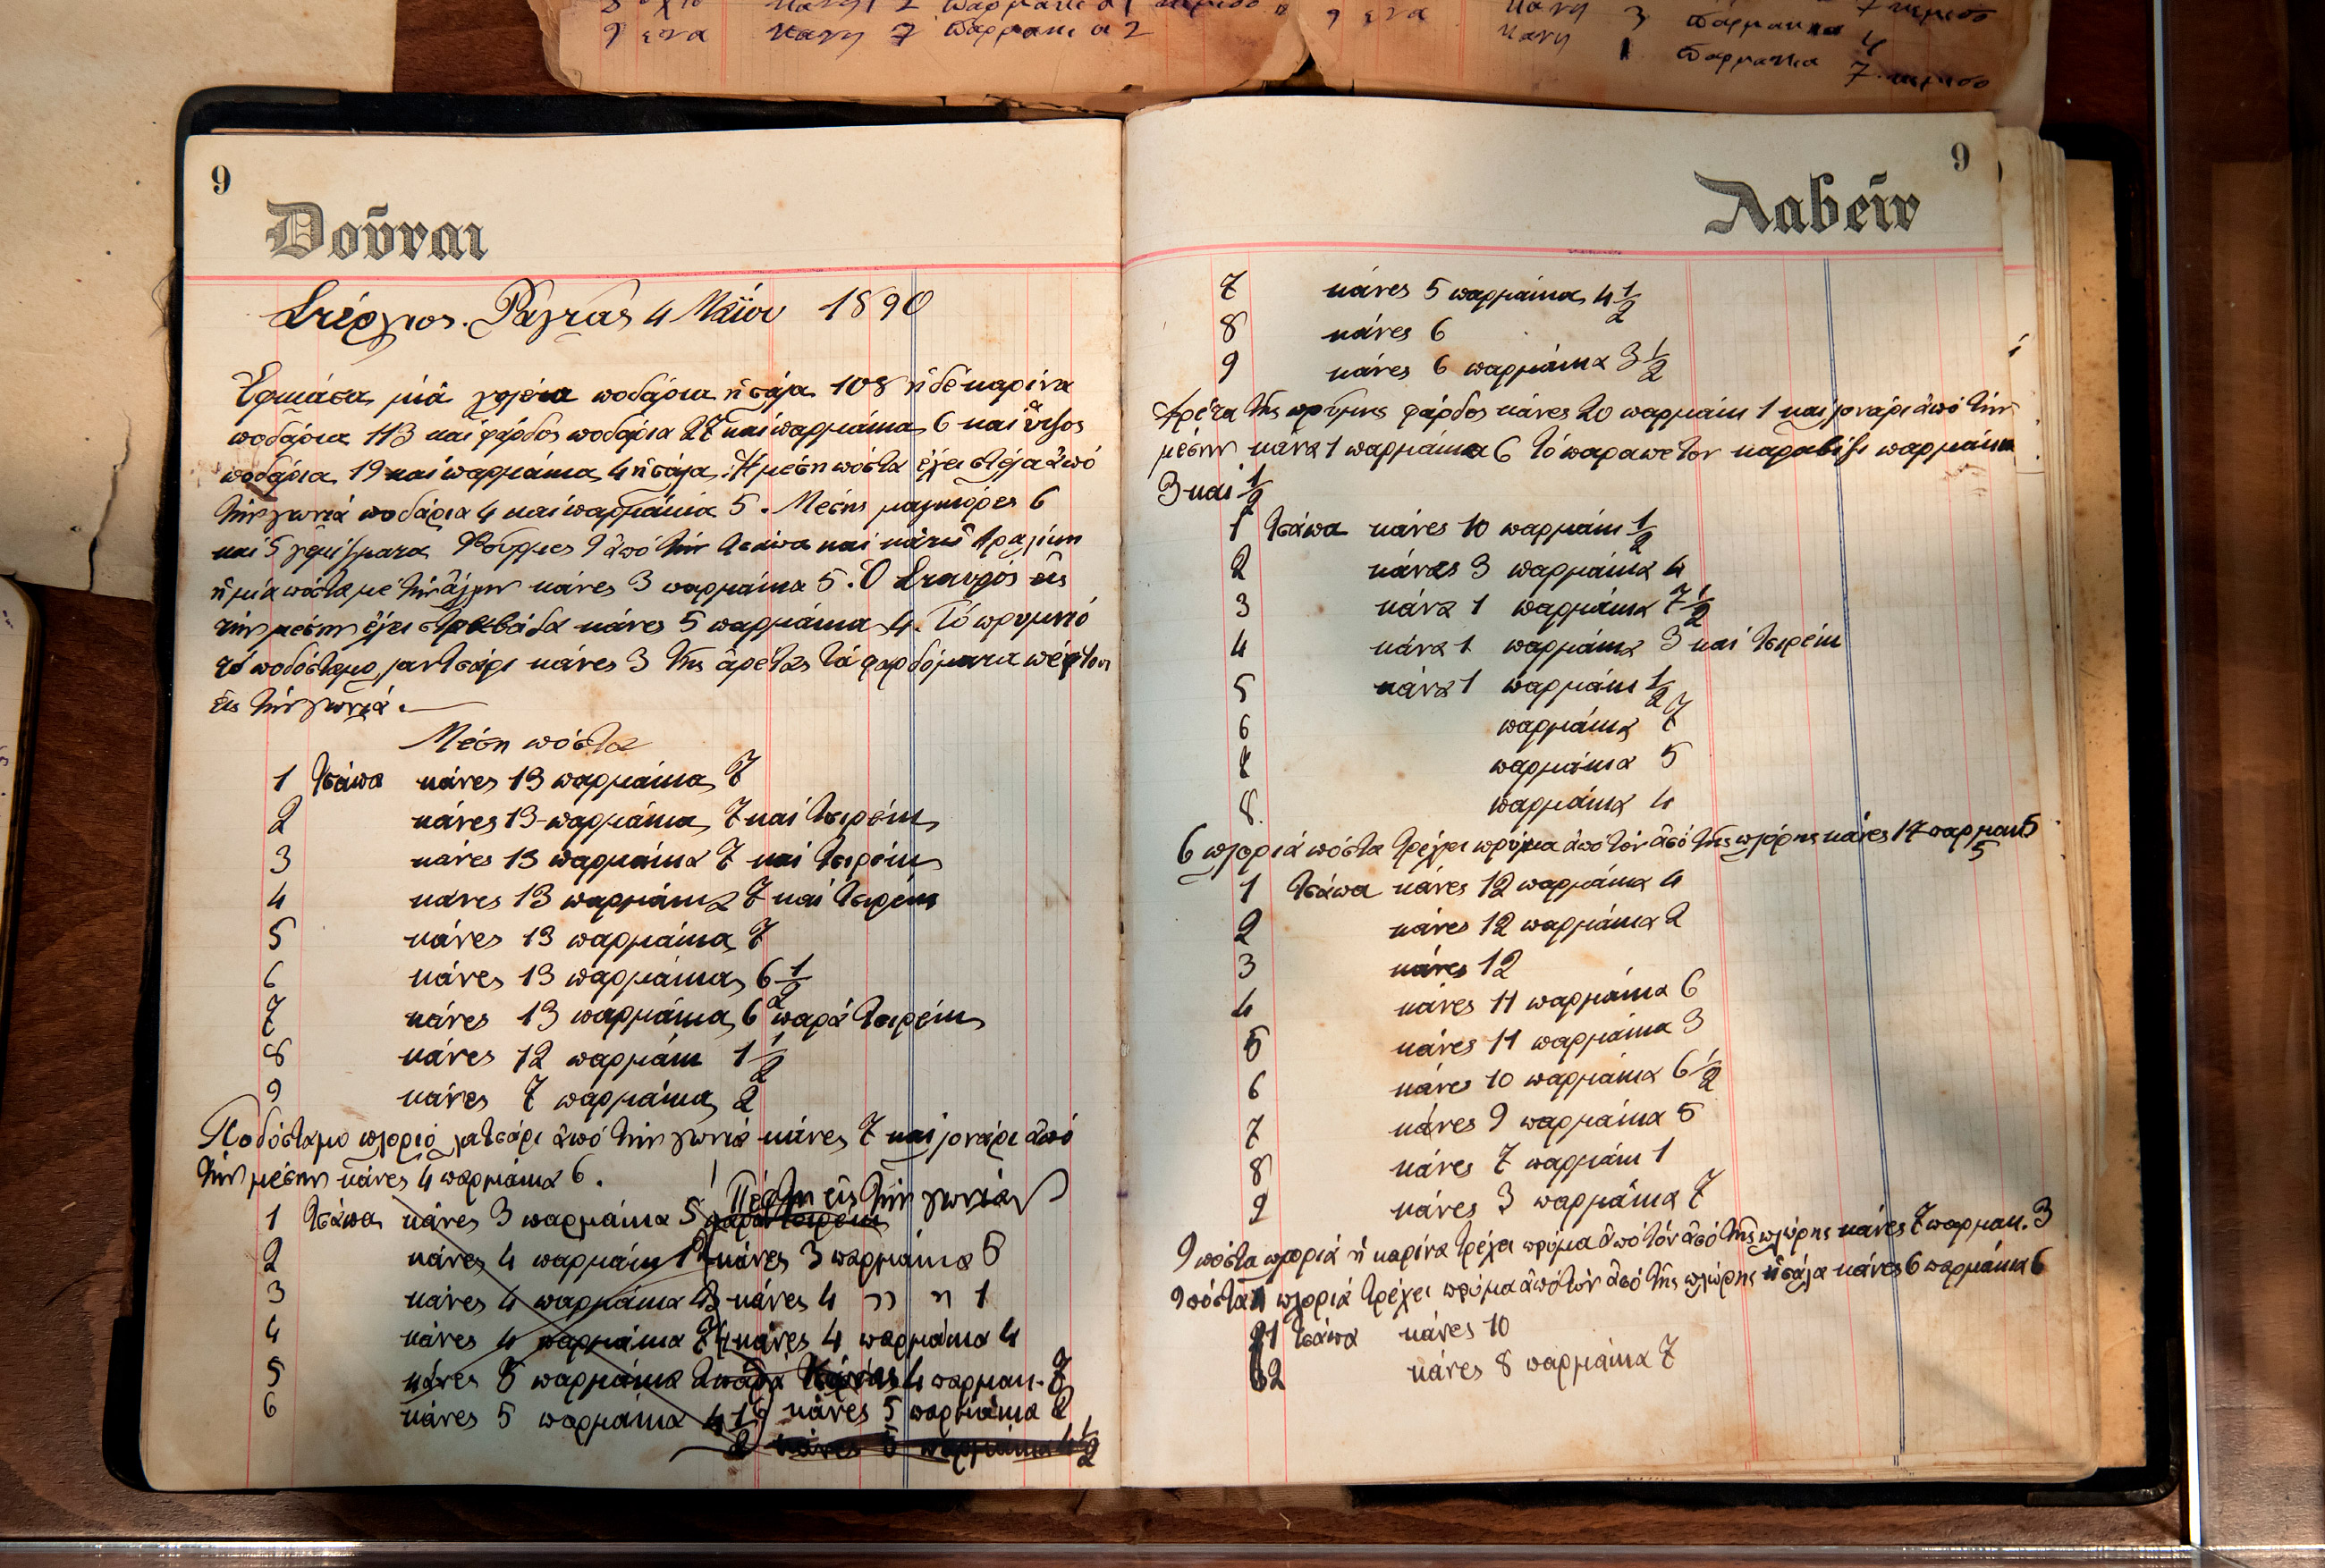 9 ενα κανη 7 παρμακια 2
9 ενα κανη 3 παρμακια 4
κανη 1 παρμακια 7
9
Δοῦναι
Στέργιος 4 Μαΐου 1890
Ἐφκιάσα μιά ποδάρια ἡ σάγα 108 ἡ δέ καρίνα
ποδάρια 113 καί φάρδος ποδάρια 27 καί παρμάκια 6 καί ὕψος
ποδάρια 19 καί παρμάκια 4 ἡ σάγα. Ἡ μέση πόστα ἔχει ἀπό
τήν γωνιά ποδάρια 4 καί παρμάκια 5. Μέσης 6
καί 5 γεμίσματα 9 ἀπό τήν τσάπα καί κάτω
ἡ μία πόστα με τήν ἄλλην κάνες 3 παρμάκια 5. Ὁ Σταυρός εἰς
τήν μέσην ἔχει κάνες 5 παρμάκια 4. Τό πρυμνιό
τό ποδόσταμο γατσάρι κάνες 3 τῆς ἀρέτας τά φαρδόματα πέφτουν
εἰς τήν γωνιά.
Μέση πόστα
1 τσάπα κάνες 13 παρμάκια 7
2 κάνες 13 παρμάκια 7 καί τσιρέκι
3 κάνες 13 παρμάκια 7 καί τσιρέκι
4 κάνες 13 παρμάκια 7 καί τσιρέκι
5 κάνες 13 παρμάκια 7
6 κάνες 13 παρμάκια 6 1/2
7 κάνες 13 παρμάκια 6 παρά τσιρέκι
8 κάνες 12 παρμάκι 1 1/2
9 κάνες 7 παρμάκια 2
Ποδόσταμο πλοριό γατσάρι ἀπό τήν γωνιά κάνες 7 καί μονάρι ἀπό
τήν μέσην κάνες 4 παρμάκια 6.
Πέφτη εἰς τήν γωνιά
1 τσάπα κάνες 3 παρμάκια 5 παρά τσιρέκι
2 κάνες 4 παρμάκι 1 κάνες 3 παρμάκια 5
3 κάνες 4 παρμάκια κάνες 4 〃 〃 1
4 κάνες 4 παρμάκια κάνες 4 παρμάκια 4
5 κάνες 5 παρμάκια 2 παρά κάνες 4 παρμακ. 7
6 κάνες 5 παρμάκια 4 1/2 κάνες 5 παρμάκια 2
κάνες 5 παρμάκια 4 1/2
9
Λαβεῖν
7 κάνες 5 παρμάκια 4 1/2
8 κάνες 6
9 κάνες 6 παρμάκια 3 1/2
Ἀρέτα τῆς πρύμης φάρδος κάνες 20 παρμάκι 1 καί μονάρι ἀπό τήν
μέσην κάνα 1 παρμάκια 6 τό παραπέτον παρμάκια
3 καί 1/2
1 τσάπα κάνες 10 παρμάκι 1/2
2 κάνες 3 παρμάκια 4
3 κάνα 1 παρμάκια 7 1/2
4 κάνα 1 παρμάκια 3 καί τσιρέκι
5 κάνα 1 παρμάκι 1/2
6 παρμάκια 7
παρμάκια 5
8 παρμάκια 4
6 πλοριά πόστα τρέχει πρύμα ἀπό τόν ἀσό τῆς πλώρης κάνες 17 παρμακ 5
5
1 τσάπα κάνες 12 παρμάκια 4
2 κάνες 12 παρμάκια 2
3 κάνες 12
4 κάνες 11 παρμάκια 6
5 κάνες 11 παρμάκια 3
6 κάνες 10 παρμάκια 6 1/2
7 κάνες 9 παρμάκια 5
8 κάνες 7 παρμάκι 1
9 κάνες 3 παρμάκια 7
9 πόστα πλοριά ἡ καρίνα τρέχει πρύμα ἀπό τόν ἀσό τῆς πλώρης κάνες 7 παρμακ. 3
9 πόστα πλοριά τρέχει πρύμα ἀπό τόν ἀσό τῆς πλώρης ἡ σάγα κάνες 6 παρμάκια 6
1 τσάπα κάνες 10
2 κάνες 8 παρμάκια 7